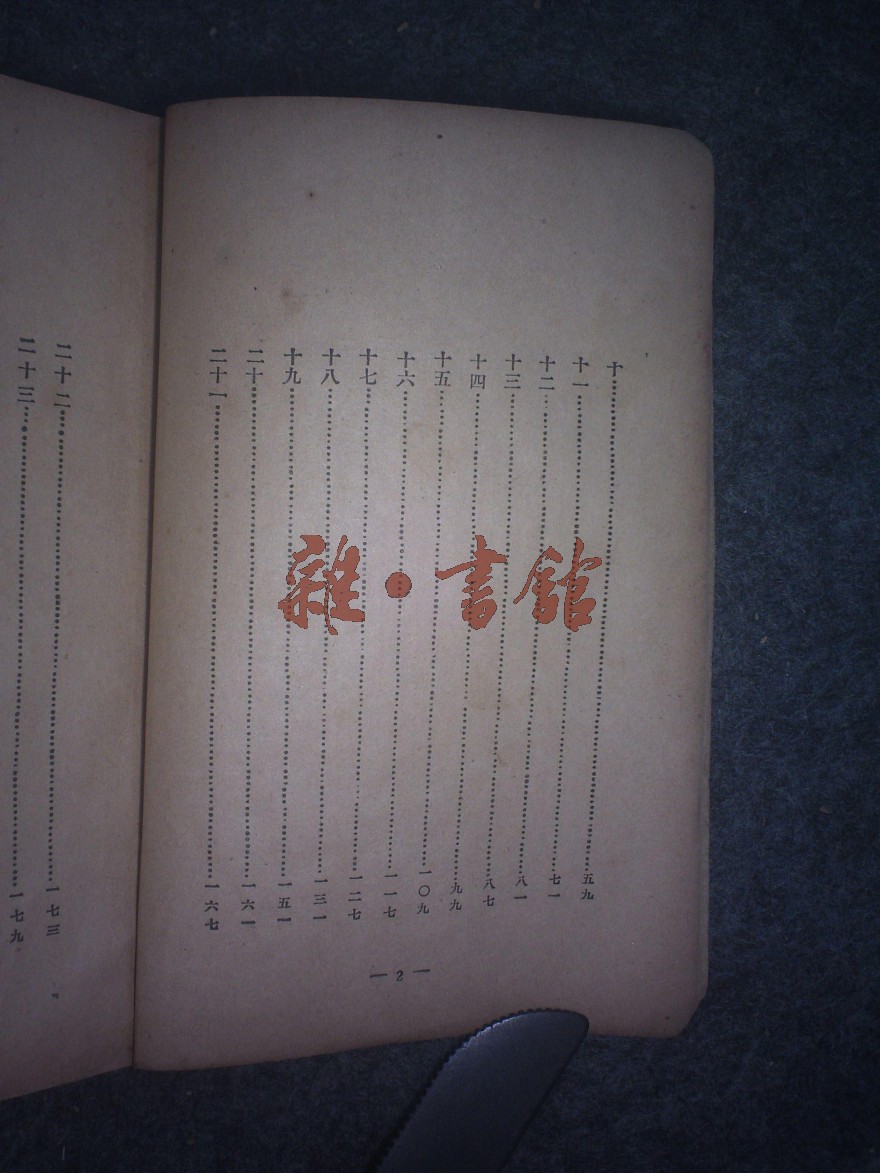 十……五九
十一……七一
十二……八一
十三……八七
十四……九九
十五……一〇九
十六……一一七
十七……一二七
十八……一三一
十九……一五一
二十……一六一
二十一……一六七
— 2 —
二十二……一七三
二十三……一七九
雜・書館